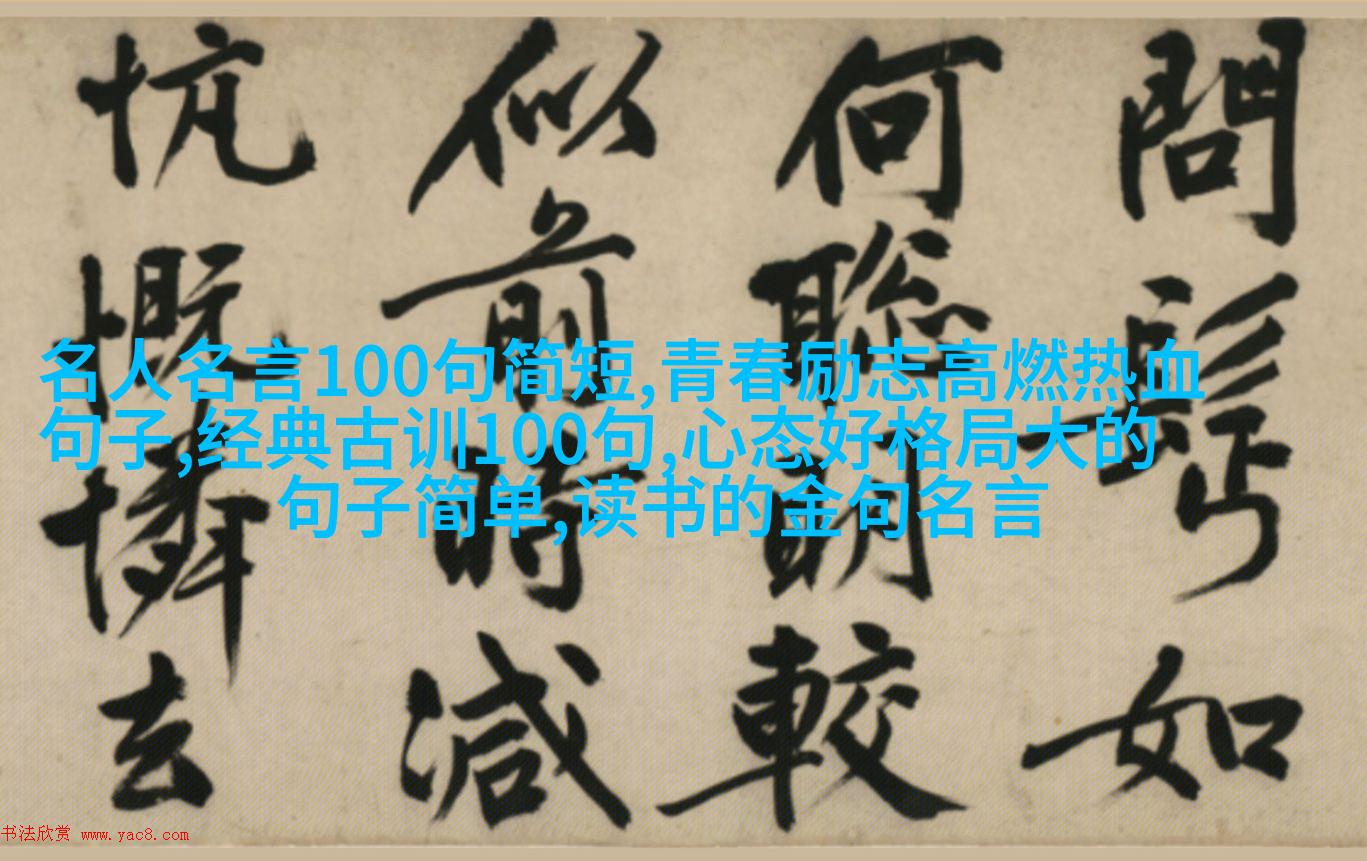 問如
何聰明較
似前時減
忼慨憐去
名人名言100句简短,青春励志高燃热血
句子,经典古训100句,心态好格局大的
句子简单,读书的金句名言
书法欣赏 www.yac8.com